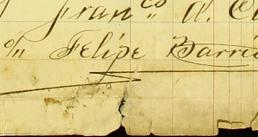 Fran.co A. C
o/n Felipe Barri